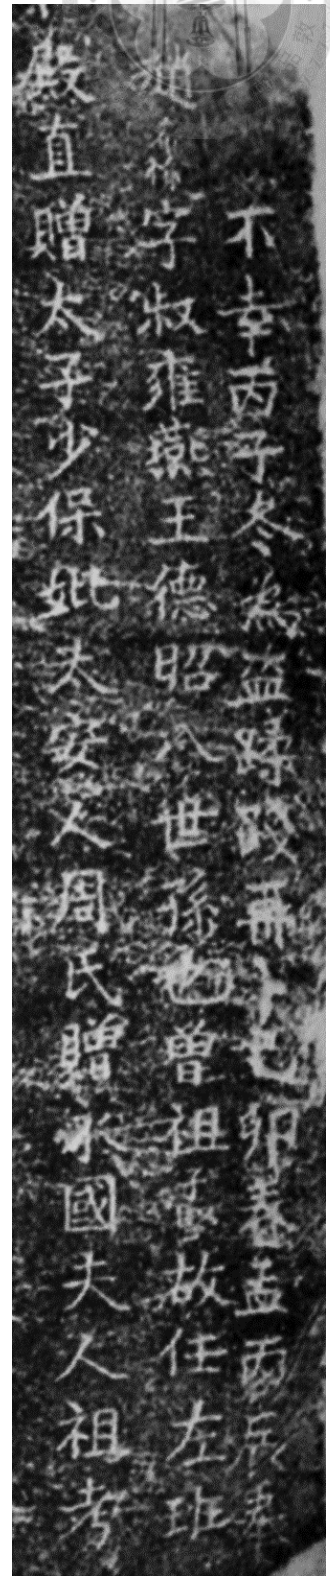 不幸丙子冬為盜蹂踐再卜己卯春孟丙辰
字叔雍燕王德昭八世孫也曾祖子故任左班
殿直贈太子少保妣太安人周氏贈永國夫人祖考